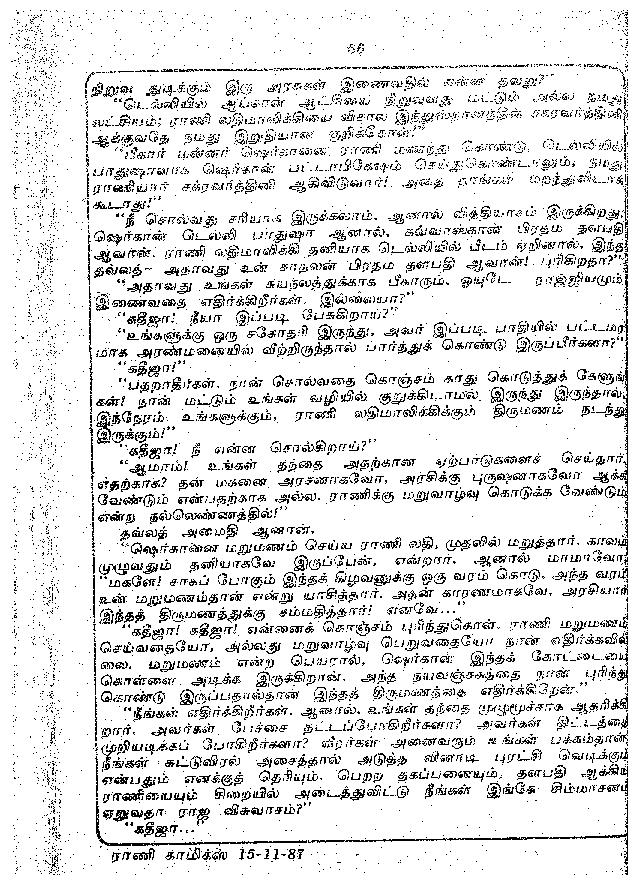 66
நிறுவ துடிக்கும் இரு அரசுகள் இணைவதில் என்ன தவறு?"
"டெல்லியில் ஆப்கான் ஆட்சியை நிறுவுவது மட்டும் அல்ல நமது
லட்சியம்; ராணி லதிமாலிக்கியை விசால இந்துஸ்தானத்தின் சக்ரவர்த்தினி
ஆக்குவதே நமது இறுதியான குறிக்கோள்!"
"பீகார் மன்னர் ஷெர்கானை ராணி மணந்து கொண்டு, டெல்லியில்
பாதுஷாவாக ஷெர்கான் பட்டாபிஷேகம் செய்துகொண்டாலும், நமது
ராணியார் சக்ரவர்த்தினி ஆகிவிடுவார்! அதை நாங்கள் மறந்துவிடக்
கூடாது!"
"நீ சொல்வது சரியாக இருக்கலாம். ஆனால் வித்தியாசம் இருக்கிறது.
ஷெர்கான் டெல்லி பாதுஷா ஆனால், கவ்வாஸ்கான் பிரதம தளபதி
ஆவான். ராணி லதிமாலிக்கி தனியாக டெல்லியில் பீடம் ஏறினால், இந்த
தவ்லத்– அதாவது உன் காதலன் பிரதம தளபதி ஆவான்! புரிகிறதா?"
"அதாவது உங்கள் சுயநலத்துக்காக பீகாரும், ராஜ்ஜியமும்
இணைவதை எதிர்க்கிறீர்கள். இல்லையா?"
"கதீஜா! நீயா இப்படி பேசுகிறாய்?"
"உங்களுக்கு ஒரு சகோதரி இருந்து, அவர் இப்படி, பாதியில் பட்டமர
மாக அரண்மனையில் வீற்றிருந்தால் பார்த்துக் கொண்டு இருப்பீர்களா?"
"கதீஜா!"
"பதறாதீர்கள். நான் சொல்வதை கொஞ்சம் காது கொடுத்துக் கேளுங்
கள்! நான் மட்டும் உங்கள் வழியில் குறுக்கிடாமல் இருந்து இருந்தால்,
இந்நேரம் உங்களுக்கும், ராணி லதிமாலிக்கிக்கும் திருமணம் நடந்து
இருக்கும்!"
"கதீஜா! நீ என்ன சொல்கிறாய்?"
"ஆமாம்! உங்கள் தந்தை அதற்கான ஏற்பாடுகளைச் செய்தார்.
எதற்காக? தன் மகனை அரசனாகவோ, அரசிக்கு புருஷனாகவோ ஆக்க
வேண்டும் என்பதற்காக அல்ல. ராணிக்கு மறுவாழ்வு கொடுக்க வேண்டும்
என்ற நல்லெண்ணத்தில்!"
தவ்லத் அமைதி ஆனான்.
"ஷெர்கானை மறுமணம் செய்ய ராணி லதி, முதலில் மறுத்தார். காலம்
முழுவதும் தனியாகவே இருப்பேன், என்றார். ஆனால் மாமாவோ,
"மகளே! சாகப் போகும் இந்தக் கிழவனுக்கு ஒரு வரம் கொடு. அந்த வரம்
உன் மறுமணம்தான் என்று யாசித்தார். அதன் காரணமாகவே, அரசியார்
இந்தத் திருமணத்துக்கு சம்மதித்தார்! எனவே..."
"கதீஜா! கதீஜா! என்னைக் கொஞ்சம் புரிந்துகொள். ராணி மறுமணம்
செய்வதையோ, அல்லது மறுவாழ்வு பெறுவதையோ நான் எதிர்க்கவில்
லை. மறுமணம் என்ற பெயரால், ஷெர்கான் இந்தக் கோட்டையை
கொள்ளை அடிக்க இருக்கிறான். அந்த நயவஞ்சகத்தை நான் புரிந்து
கொண்டு இருப்பதால்தான் இந்தத் திருமணத்தை எதிர்க்கிறேன்."
"நீங்கள் எதிர்க்கிறீர்கள். ஆனால், உங்கள் தந்தை முழுமூச்சாக ஆதரிக்கி
றார். அவர்கள் பேச்சை தட்டப்போகிறீர்களா? அவர்கள் திட்டத்தை
முறியடிக்கப் போகிறீர்களா? வீரர்கள் அனைவரும் உங்கள் பக்கம்தான்
நீங்கள் சுட்டுவிரல் அசைத்தால் அடுத்த வினாடி புரட்சி வெடிக்கும்
என்பதும் எனக்குத் தெரியும். பெற்ற தகப்பனையும், தளபதி ஆக்கிய
ராணியையும் சிறையில் அடைத்துவிட்டு நீங்கள் இங்கே சிம்மாசனம்
ஏறுவதா ராஜ விசுவாசம்?"
"கதீஜா..."
ராணி காமிக்ஸ் 15-11-87